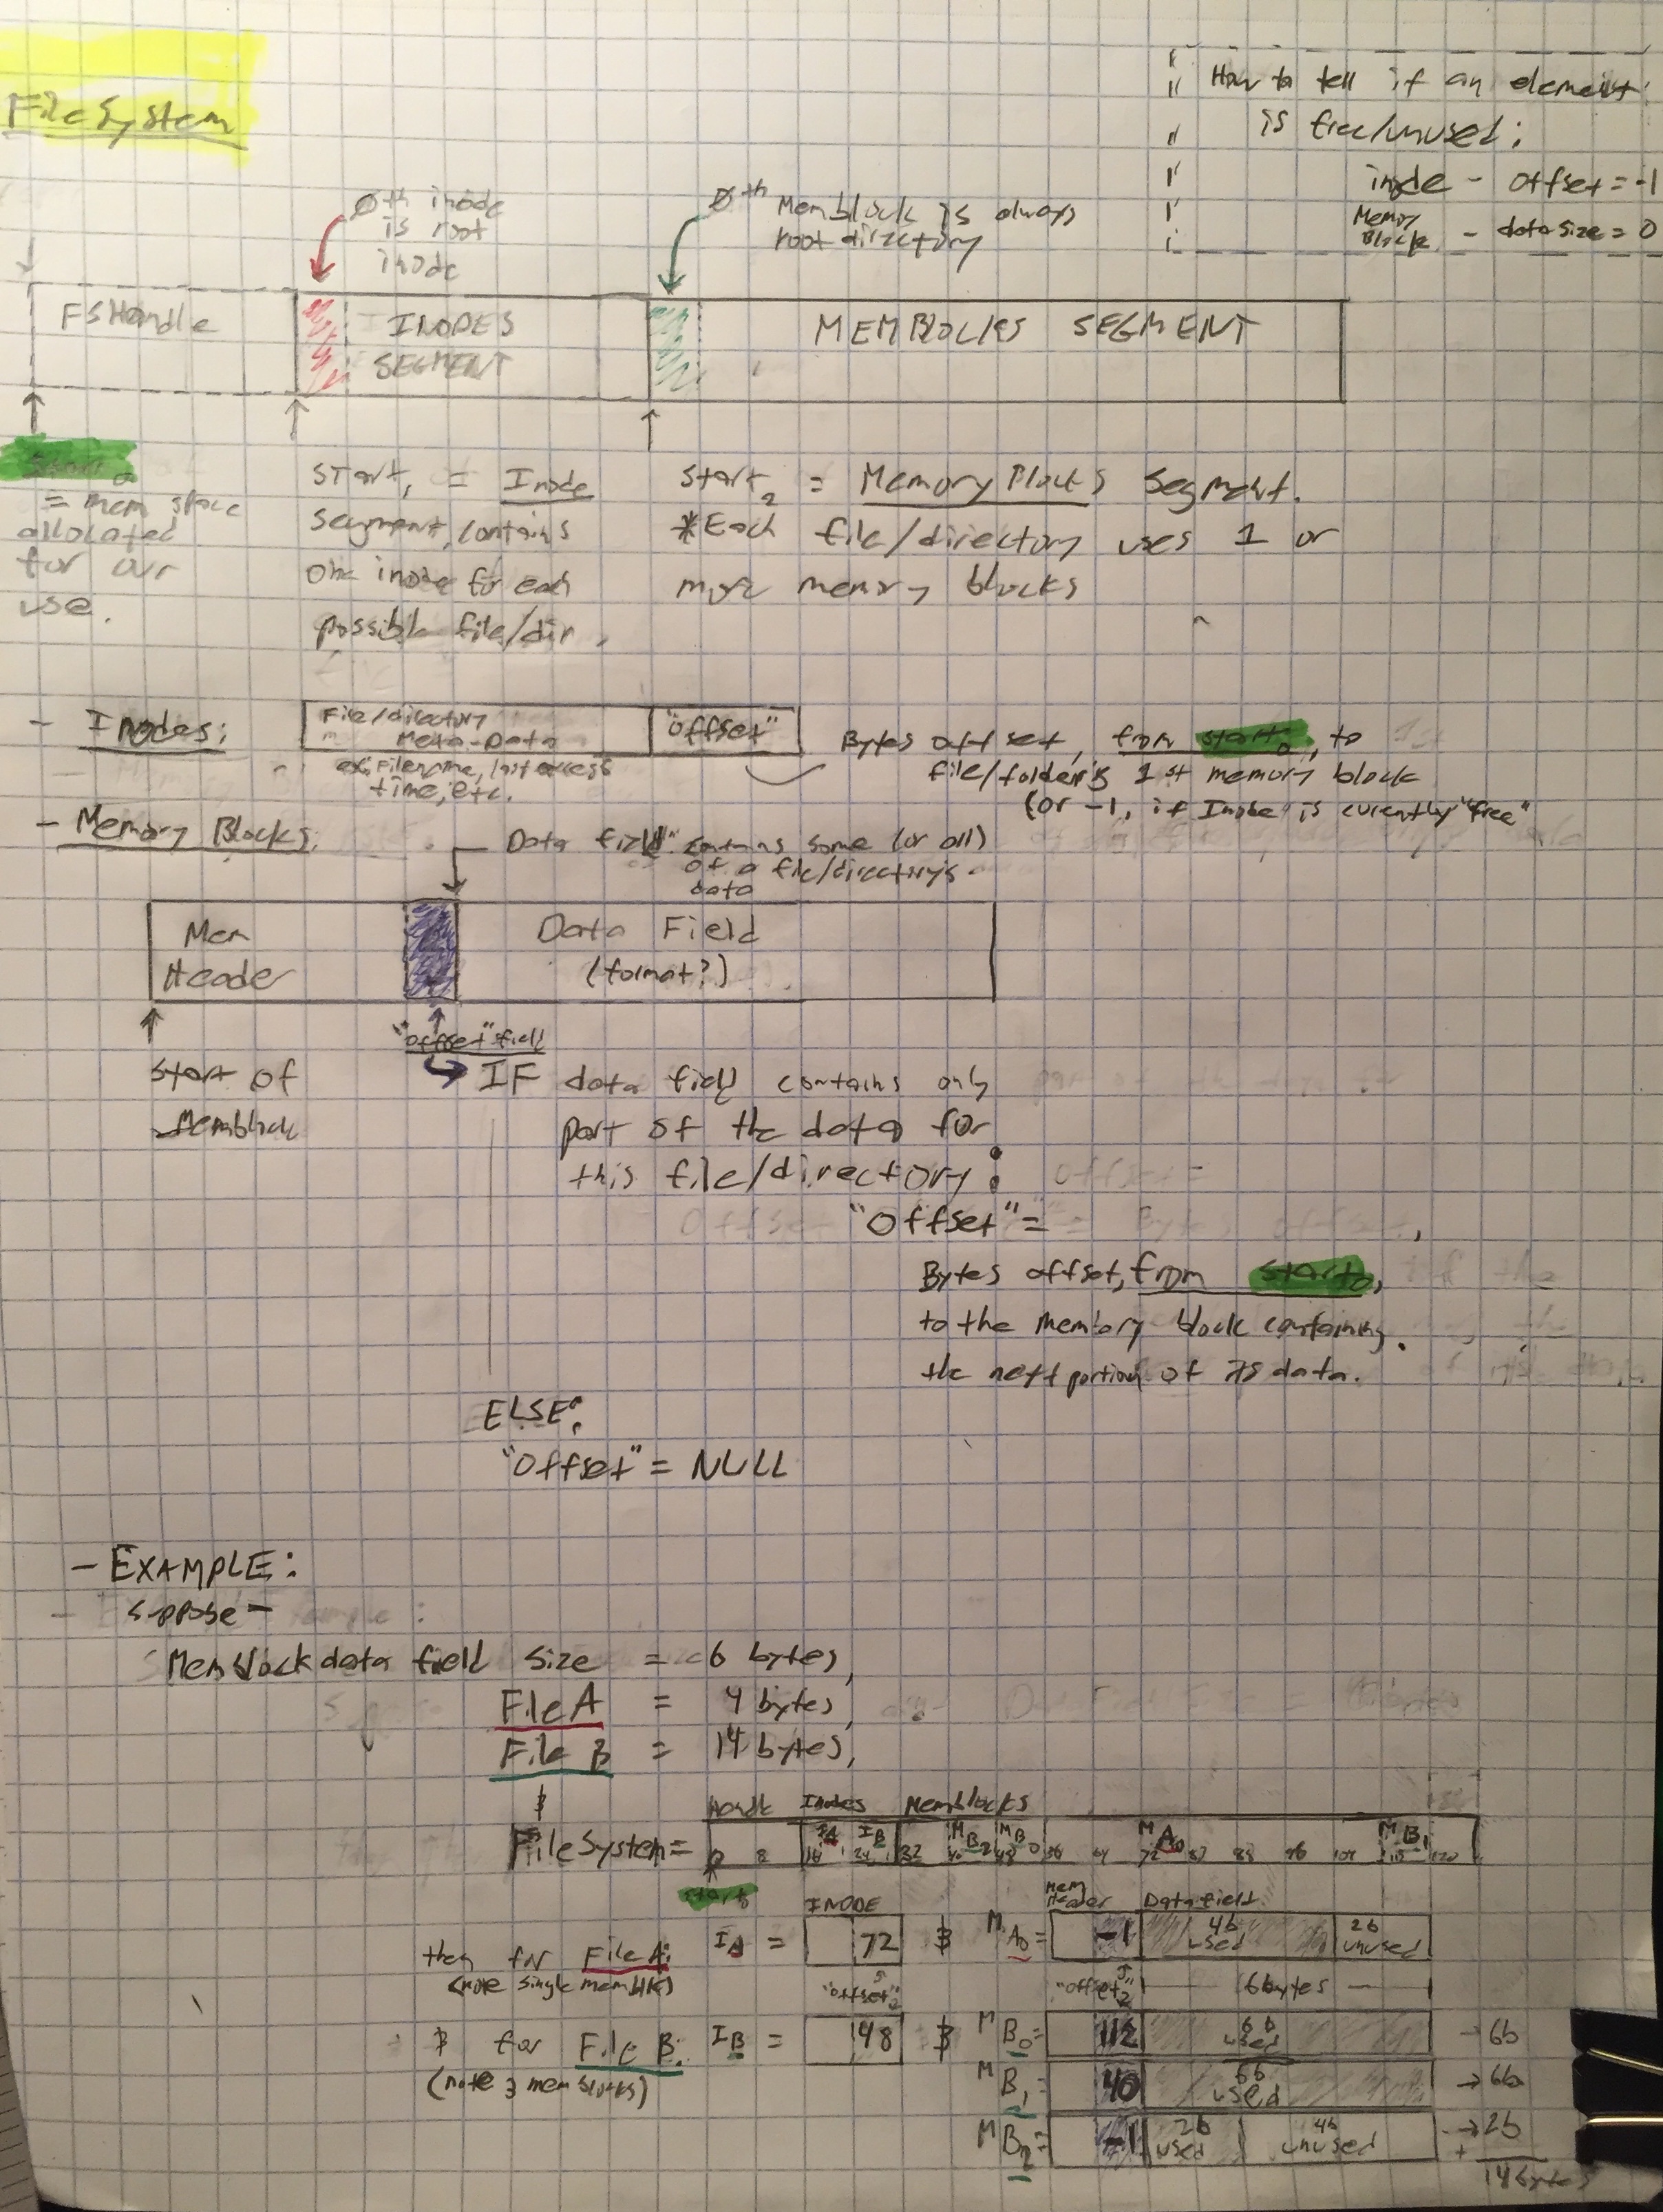 FileSystem
How to tell if an element
is free/unused:
inode - offset = -1
Memory
Block - datasize = 0
0th inode
is root
inode
0th Memblock is always
root directory
FSHandle
INODES
SEGMENT
MEMBLOCKS SEGMENT
= mem space
allocated
for our
use.
Start1 = Inode
segment, contains
one inode for each
possible file/dir.
Start2 = Memory Blocks Segment.
*Each file/directory uses 1 or
more memory blocks
- Inodes:
File/directory
Meta-Data
"offset"
ex, Filename, last access
time, etc.
Bytes offset, from start0, to
file/folder's 1st memory block
(or -1, if Inode is curently "free"
- Memory Blocks:
Data field contains some (or all)
of a file/directory's
data
Mem
Header
Data Field
(format?)
"offset" field
Start of
Memblock
IF data field contains only
part of the data for
this file/directory:
"Offset" =
Bytes offset, from start0,
to the memory block containing
the next portion of its data.
ELSE:
"Offset" = NULL
- EXAMPLE:
- suppose -
Memblock data field size = 6 bytes,
File A = 4 bytes,
File B = 14 bytes,
&
Handle Inodes Memblocks
FileSystem =
0 8 16 24 32 40 48 56 64 72 88 96 104 120
IA IB MB2 MB0 MA0 MB1
start0
INODE
Mem
Header
Data field
then for File A:
(note single memblk)
IA = 72 & MA0 = -1 4b used 2b unused
"offset" "offset" 6 bytes
& for File B:
(note 3 memblocks)
IB = 48 & MB0 = 112 6b used → 6b
MB1 = 40 6b used → 6b
MB2 = -1 2b used 4b unused → 2b
+
14 bytes